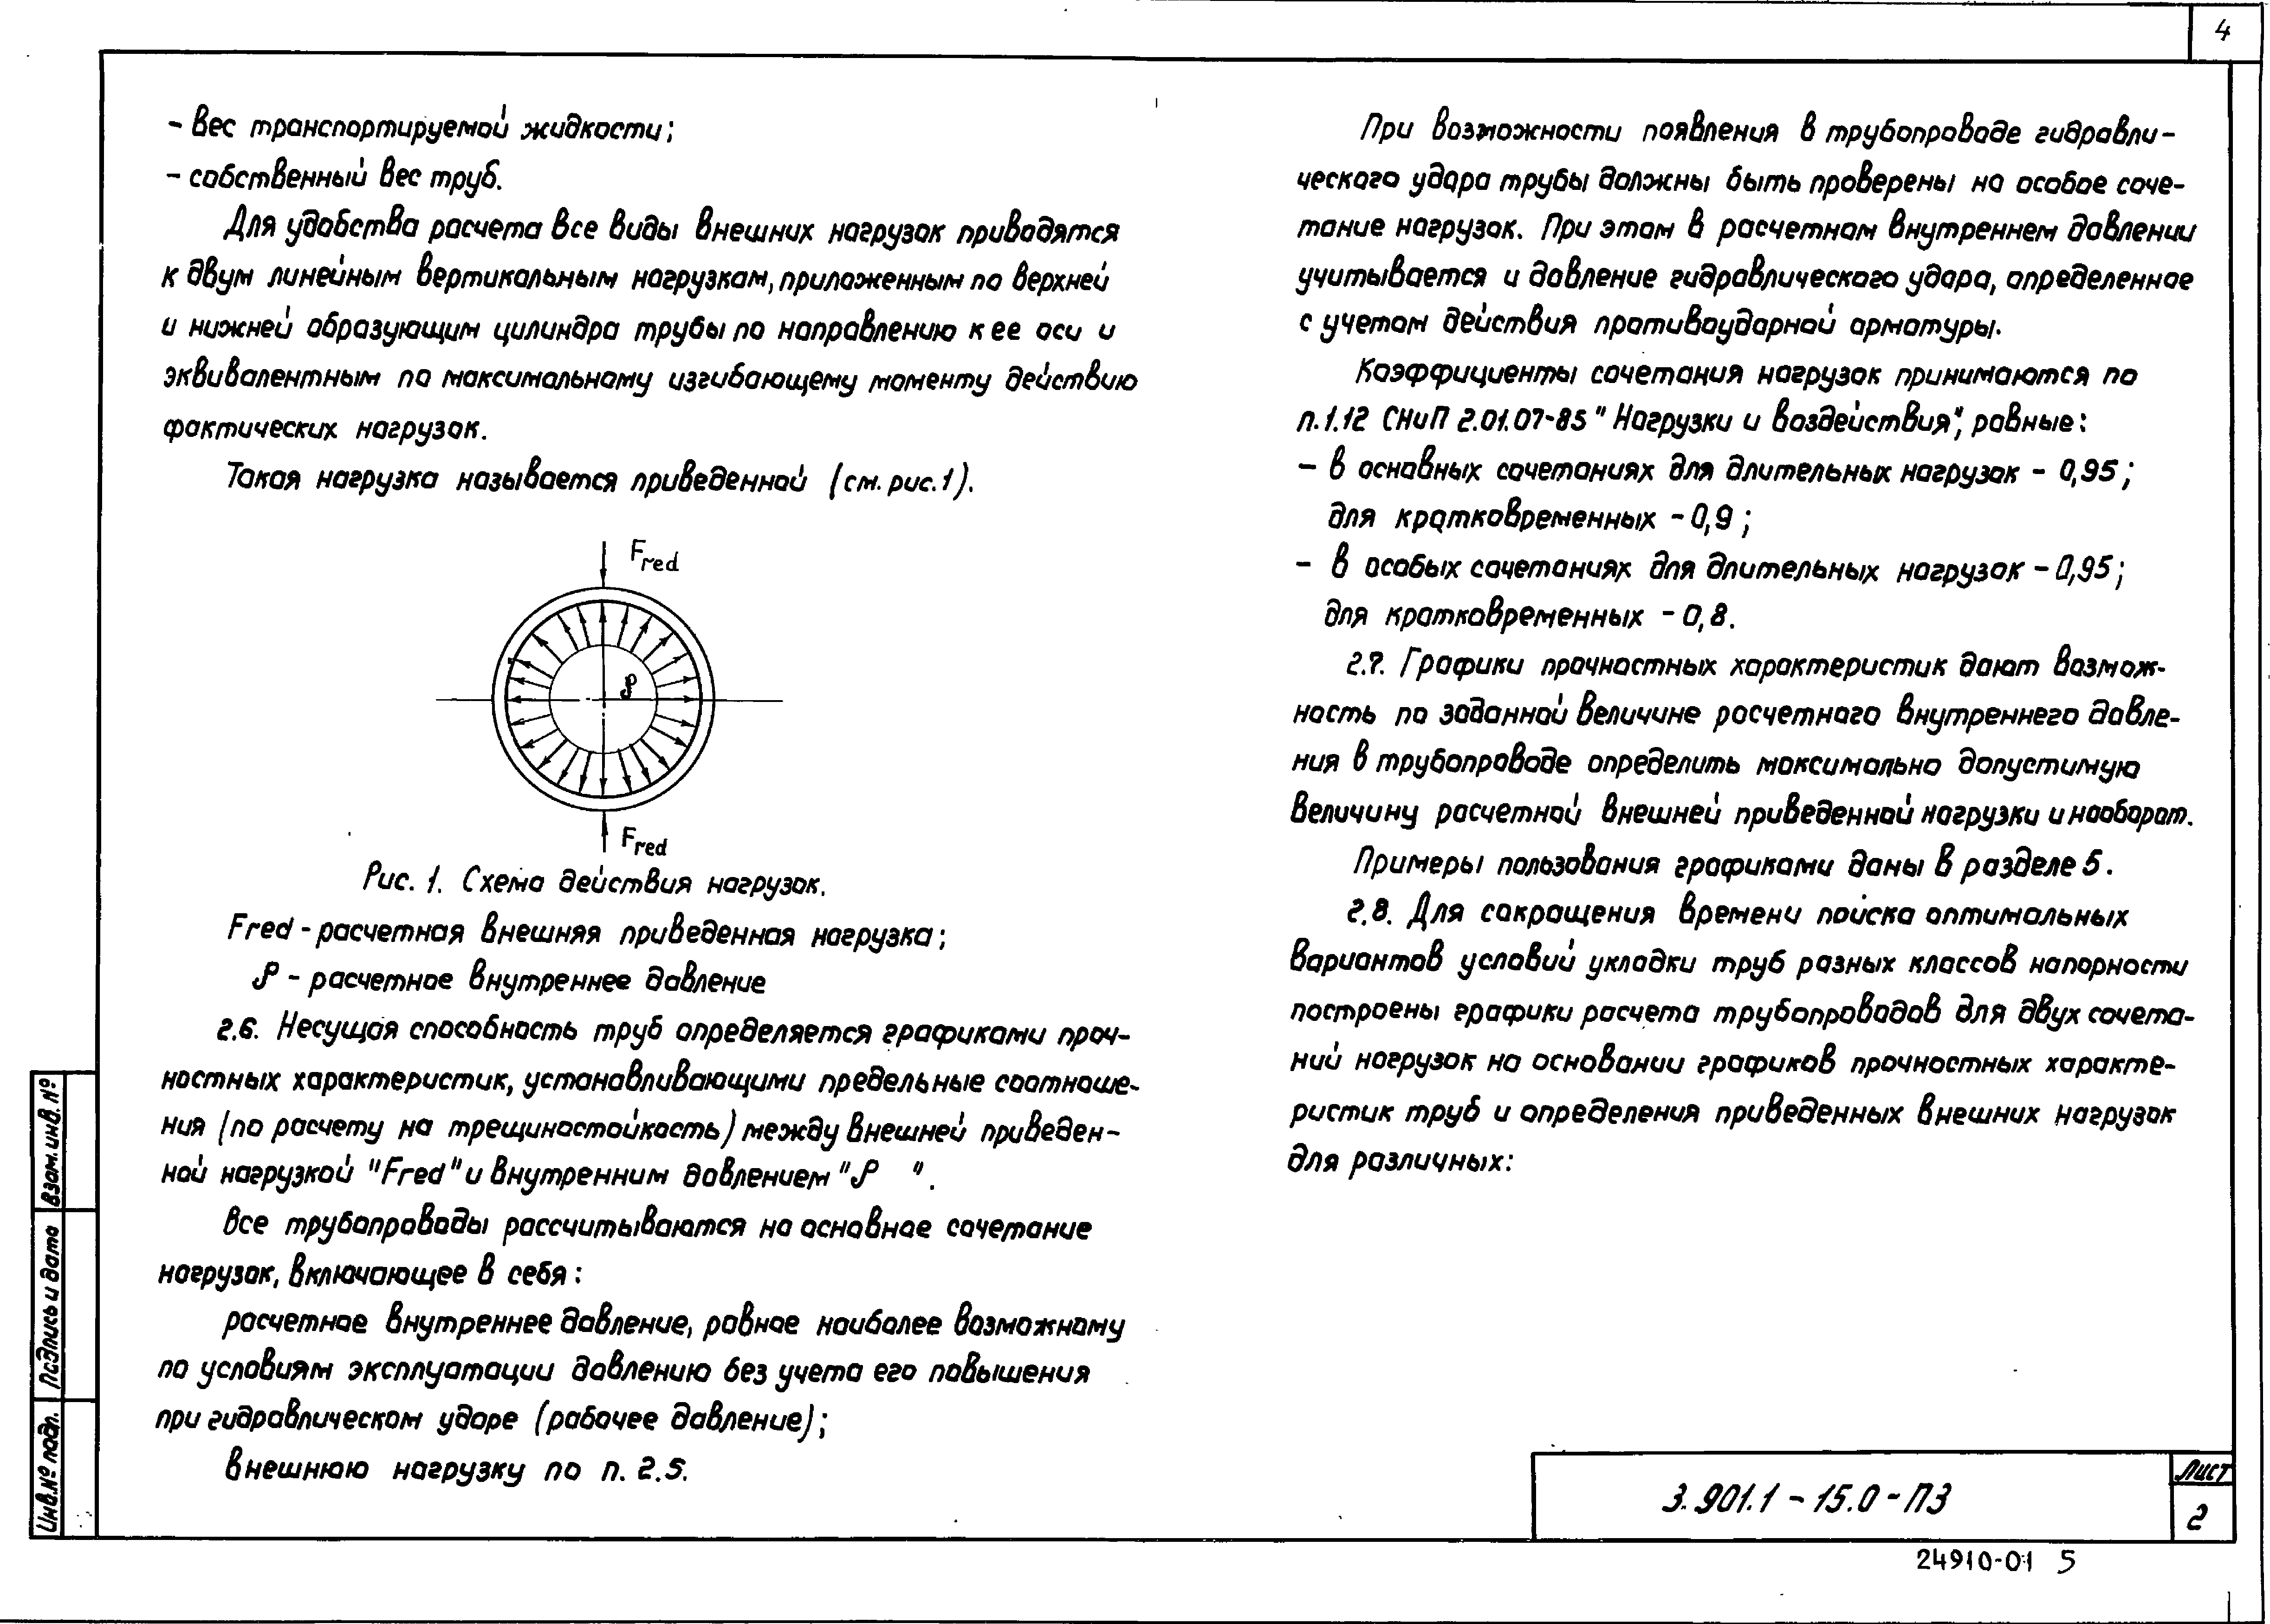 4
- вес транспортируемой жидкости;
- собственный вес труб.
Для удобства расчета все виды внешних нагрузок приводятся
к двум линейным вертикальным нагрузкам, приложенным по верхней
и нижней образующим цилиндра трубы по направлению к ее оси и
эквивалентным по максимальному изгибающему моменту действию
фактических нагрузок.
Такая нагрузка называется приведенной (см. рис. 1).
Fred
P
Fred
Рис. 1. Схема действия нагрузок.
Fred - расчетная внешняя приведенная нагрузка;
P - расчетное внутреннее давление
2.6. Несущая способность труб определяется графиками проч-
ностных характеристик, устанавливающими предельные соотноше-
ния (по расчету на трещиностойкость) между внешней приведен-
ной нагрузкой "Fred" и внутренним давлением "P ".
Все трубопроводы рассчитываются на основное сочетание
нагрузок, включающее в себя:
расчетное внутреннее давление, равное наиболее возможному
по условиям эксплуатации давлению без учета его повышения
при гидравлическом ударе (рабочее давление);
внешнюю нагрузку по п. 2.5.
При возможности появления в трубопроводе гидравли-
ческого удара трубы должны быть проверены на особое соче-
тание нагрузок. При этом в расчетном внутреннем давлении
учитывается и давление гидравлического удара, определенное
с учетом действия противоударной арматуры.
Коэффициенты сочетания нагрузок принимаются по
п. 1.12 СНиП 2.01.07-85 "Нагрузки и воздействия", равные:
- в основных сочетаниях для длительных нагрузок - 0,95;
для кратковременных - 0,9;
- в особых сочетаниях для длительных нагрузок - 0,95;
для кратковременных - 0,8.
2.7. Графики прочностных характеристик дают возмож-
ность по заданной величине расчетного внутреннего давле-
ния в трубопроводе определить максимально допустимую
величину расчетной внешней приведенной нагрузки и наоборот.
Примеры пользования графиками даны в разделе 5.
2.8. Для сокращения времени поиска оптимальных
вариантов условий укладки труб разных классов напорности
построены графики расчета трубопроводов для двух сочета-
ний нагрузок на основании графиков прочностных характе-
ристик труб и определения приведенных внешних нагрузок
для различных:
Взам. инв. №
Подпись и дата
Инв. № подл.
3.901.1 - 15.0 - ПЗ
Лист
2
24910-01 5